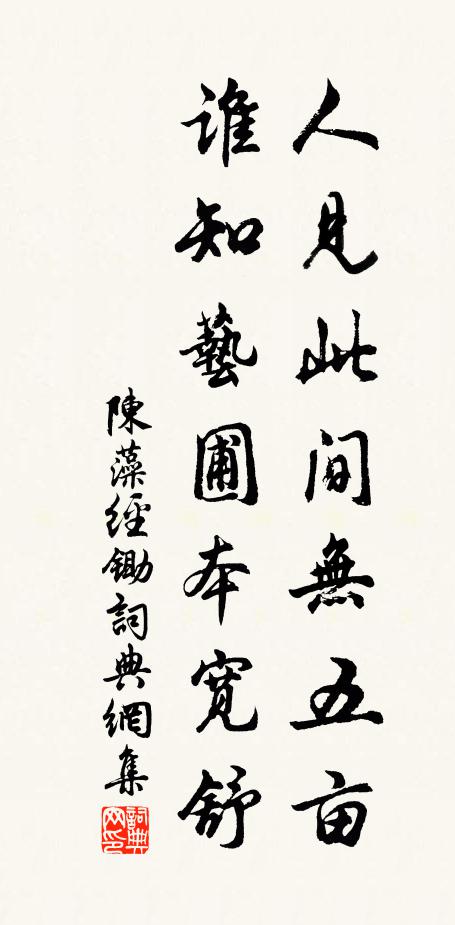 人見此間無五亩
誰知藝圃本寬舒
陳藻經鋤詞典網集
詞典网印